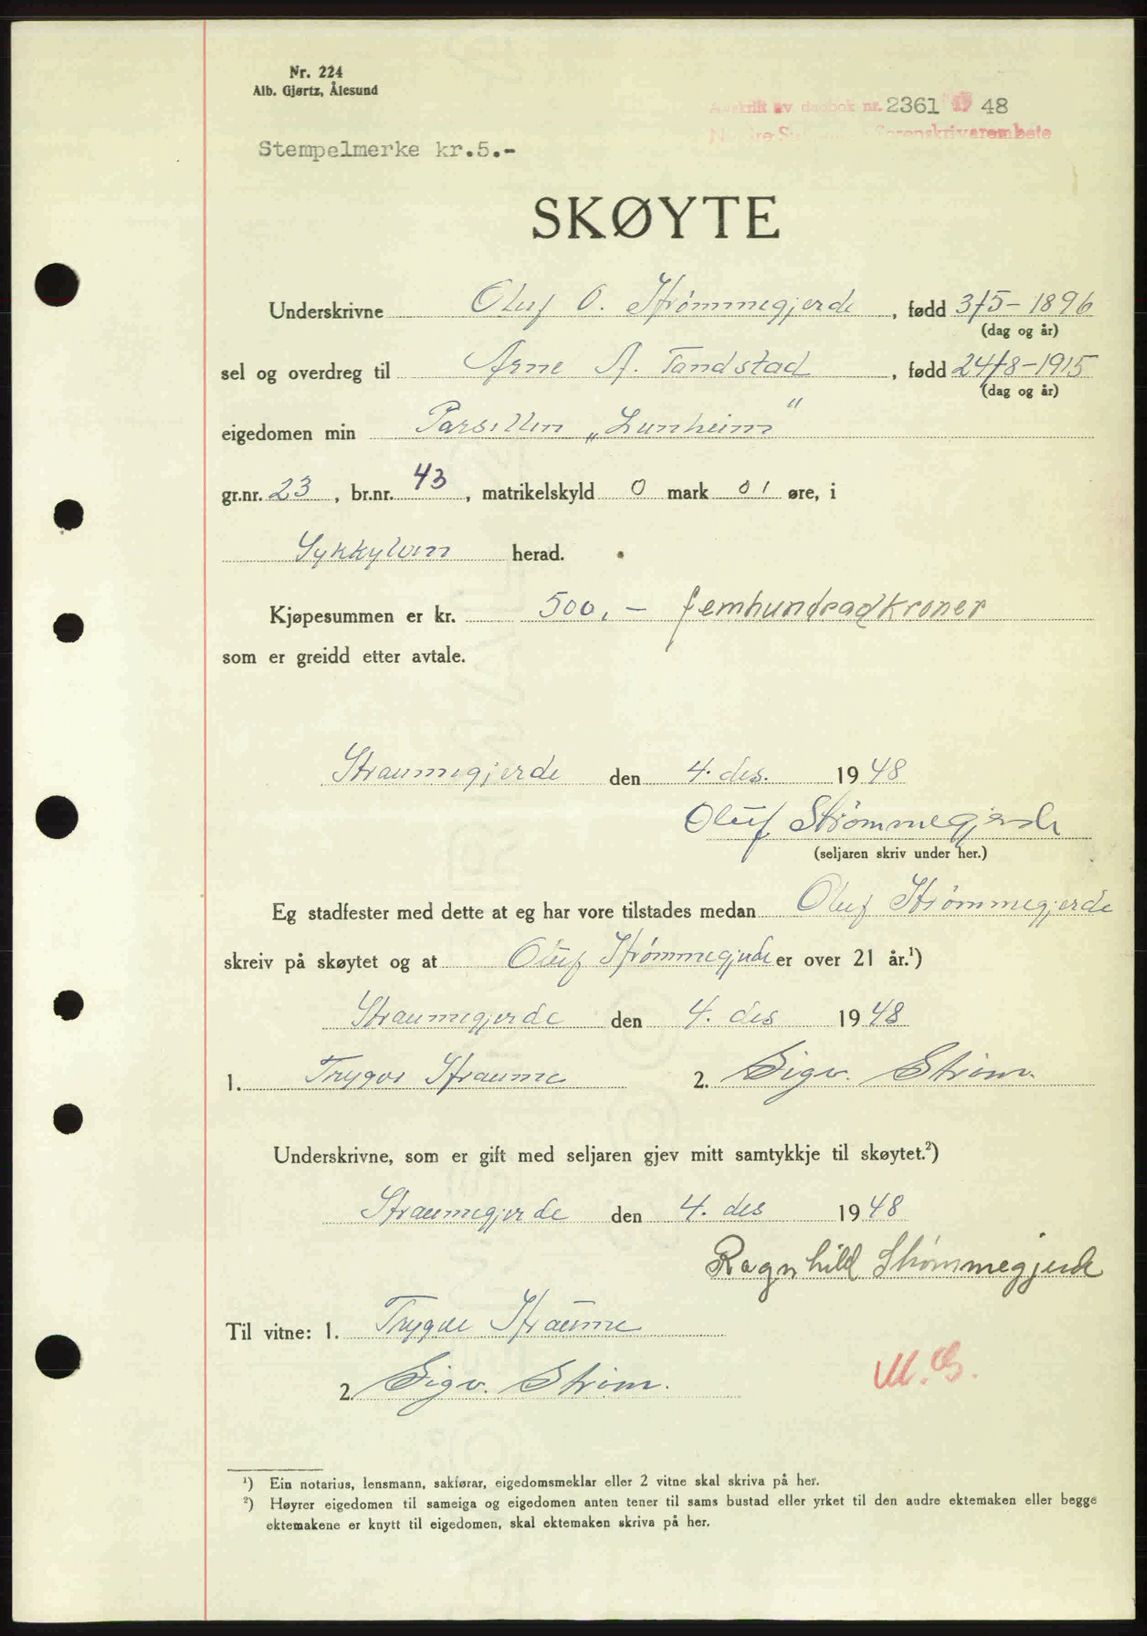 Nr. 224
Alb. Gjørtz, Ålesund
Avskrift av dagbok nr. 2361 19 48
Sorenskrivarembete
Stempelmerke kr.5.-
SKØYTE
Underskrivne Oluf O. Strømmegjerde, fødd 3/5-1896
(dag og år)
sel og overdreg til Arne A. Tandstad, fødd 24/8-1915
(dag og år)
eigedomen min Parsellen „Lunheim“
gr.nr. 23, br.nr. 43, matrikelskyld 0 mark 01 øre, i
Sykkylven herad.
Kjøpesummen er kr. 500,- femhundradkroner
som er greidd etter avtale.
Straumegjerde den 4. des. 1948
Oluf Strømmegjerde
(seljaren skriv under her.)
Eg stadfester med dette at eg har vore tilstades medan Oluf Strømmegjerde
skreiv på skøytet og at Oluf Strømmegjerde er over 21 år.¹)
Straumegjerde den 4. des 1948
1. Trygve Straume 2. Sigv. Strøm.
Underskrivne, som er gift med seljaren gjev mitt samtykkje til skøytet.²)
Straumegjerde den 4. des 1948
Ragnhild Strømmegjerde
Til vitne: 1. Trygve Straume
2. Sigv. Strøm.
M.G.
¹) Ein notarius, lensmann, sakførar, eigedomsmeklar eller 2 vitne skal skriva på her.
²) Høyrer eigedomen til sameiga og eigedomen anten tener til sams bustad eller yrket til den andre ektemaken eller begge
ektemakene er knytt til eigedomen, skal ektemaken skriva på her.